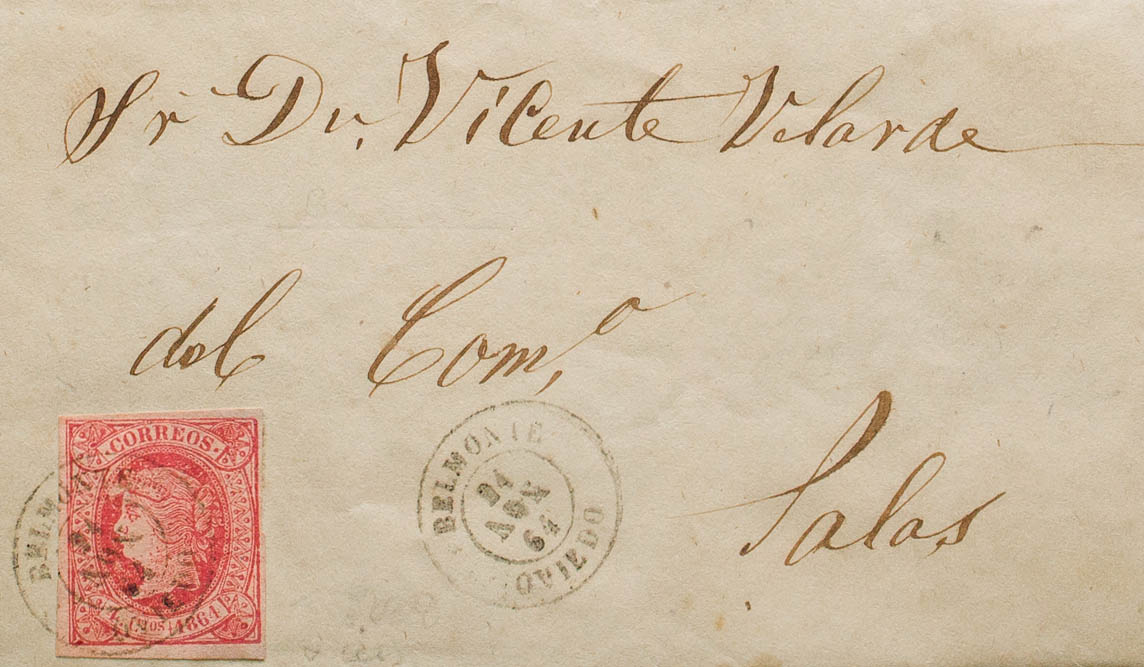 Sr Dn. Vicente Velarde
del Com.º
Salas
CORREOS.
4 CUOS 1864
BELMONTE
24
AGO
64
OVIEDO
BELMO